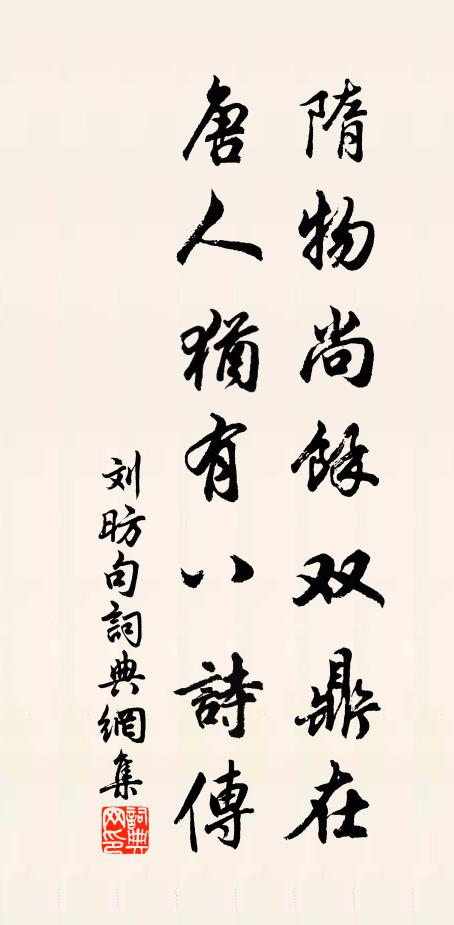 隋物尚餘双鼎在
唐人猶有八詩傳
刘昉句詞典網集
詞典网印